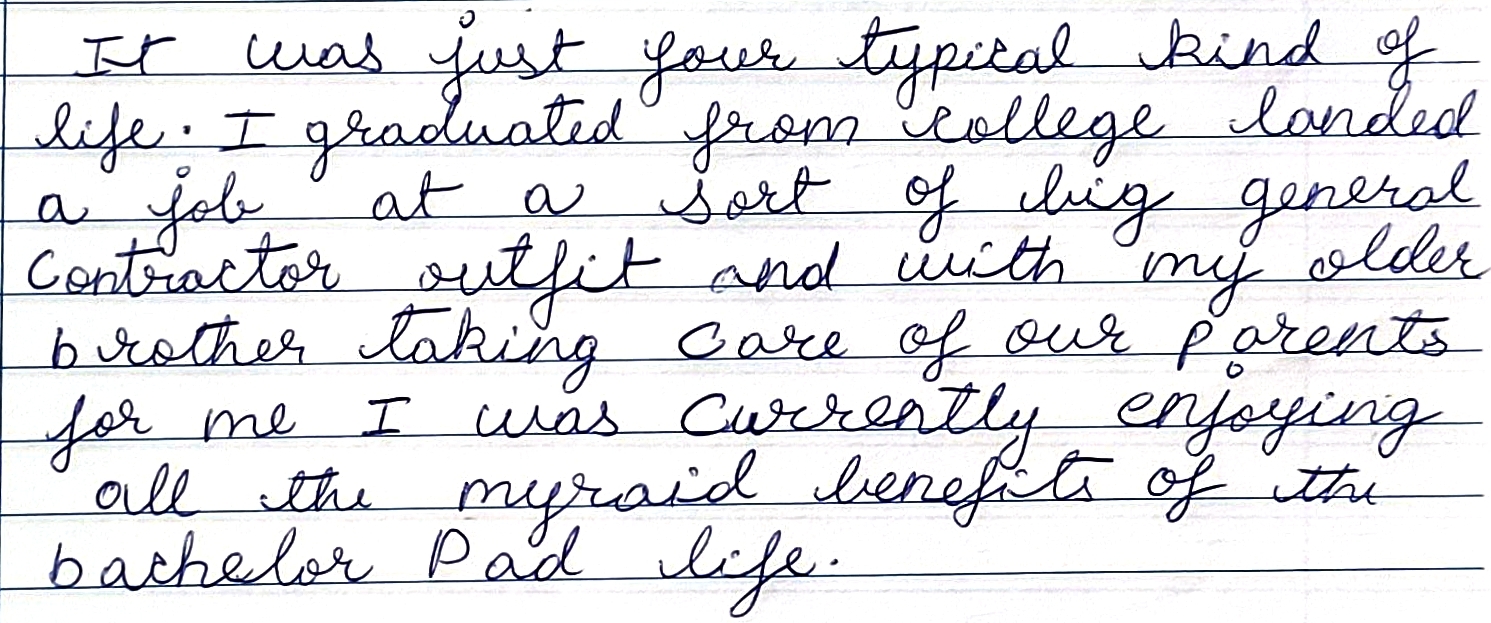 It was just your typical kind of
life. I graduated from college landed
a job at a sort of big general
Contractor outfit and with my older
brother taking Care of our parents
for me I was Currently enjoying
all the myraid benefits of the
bachelor Pad life.